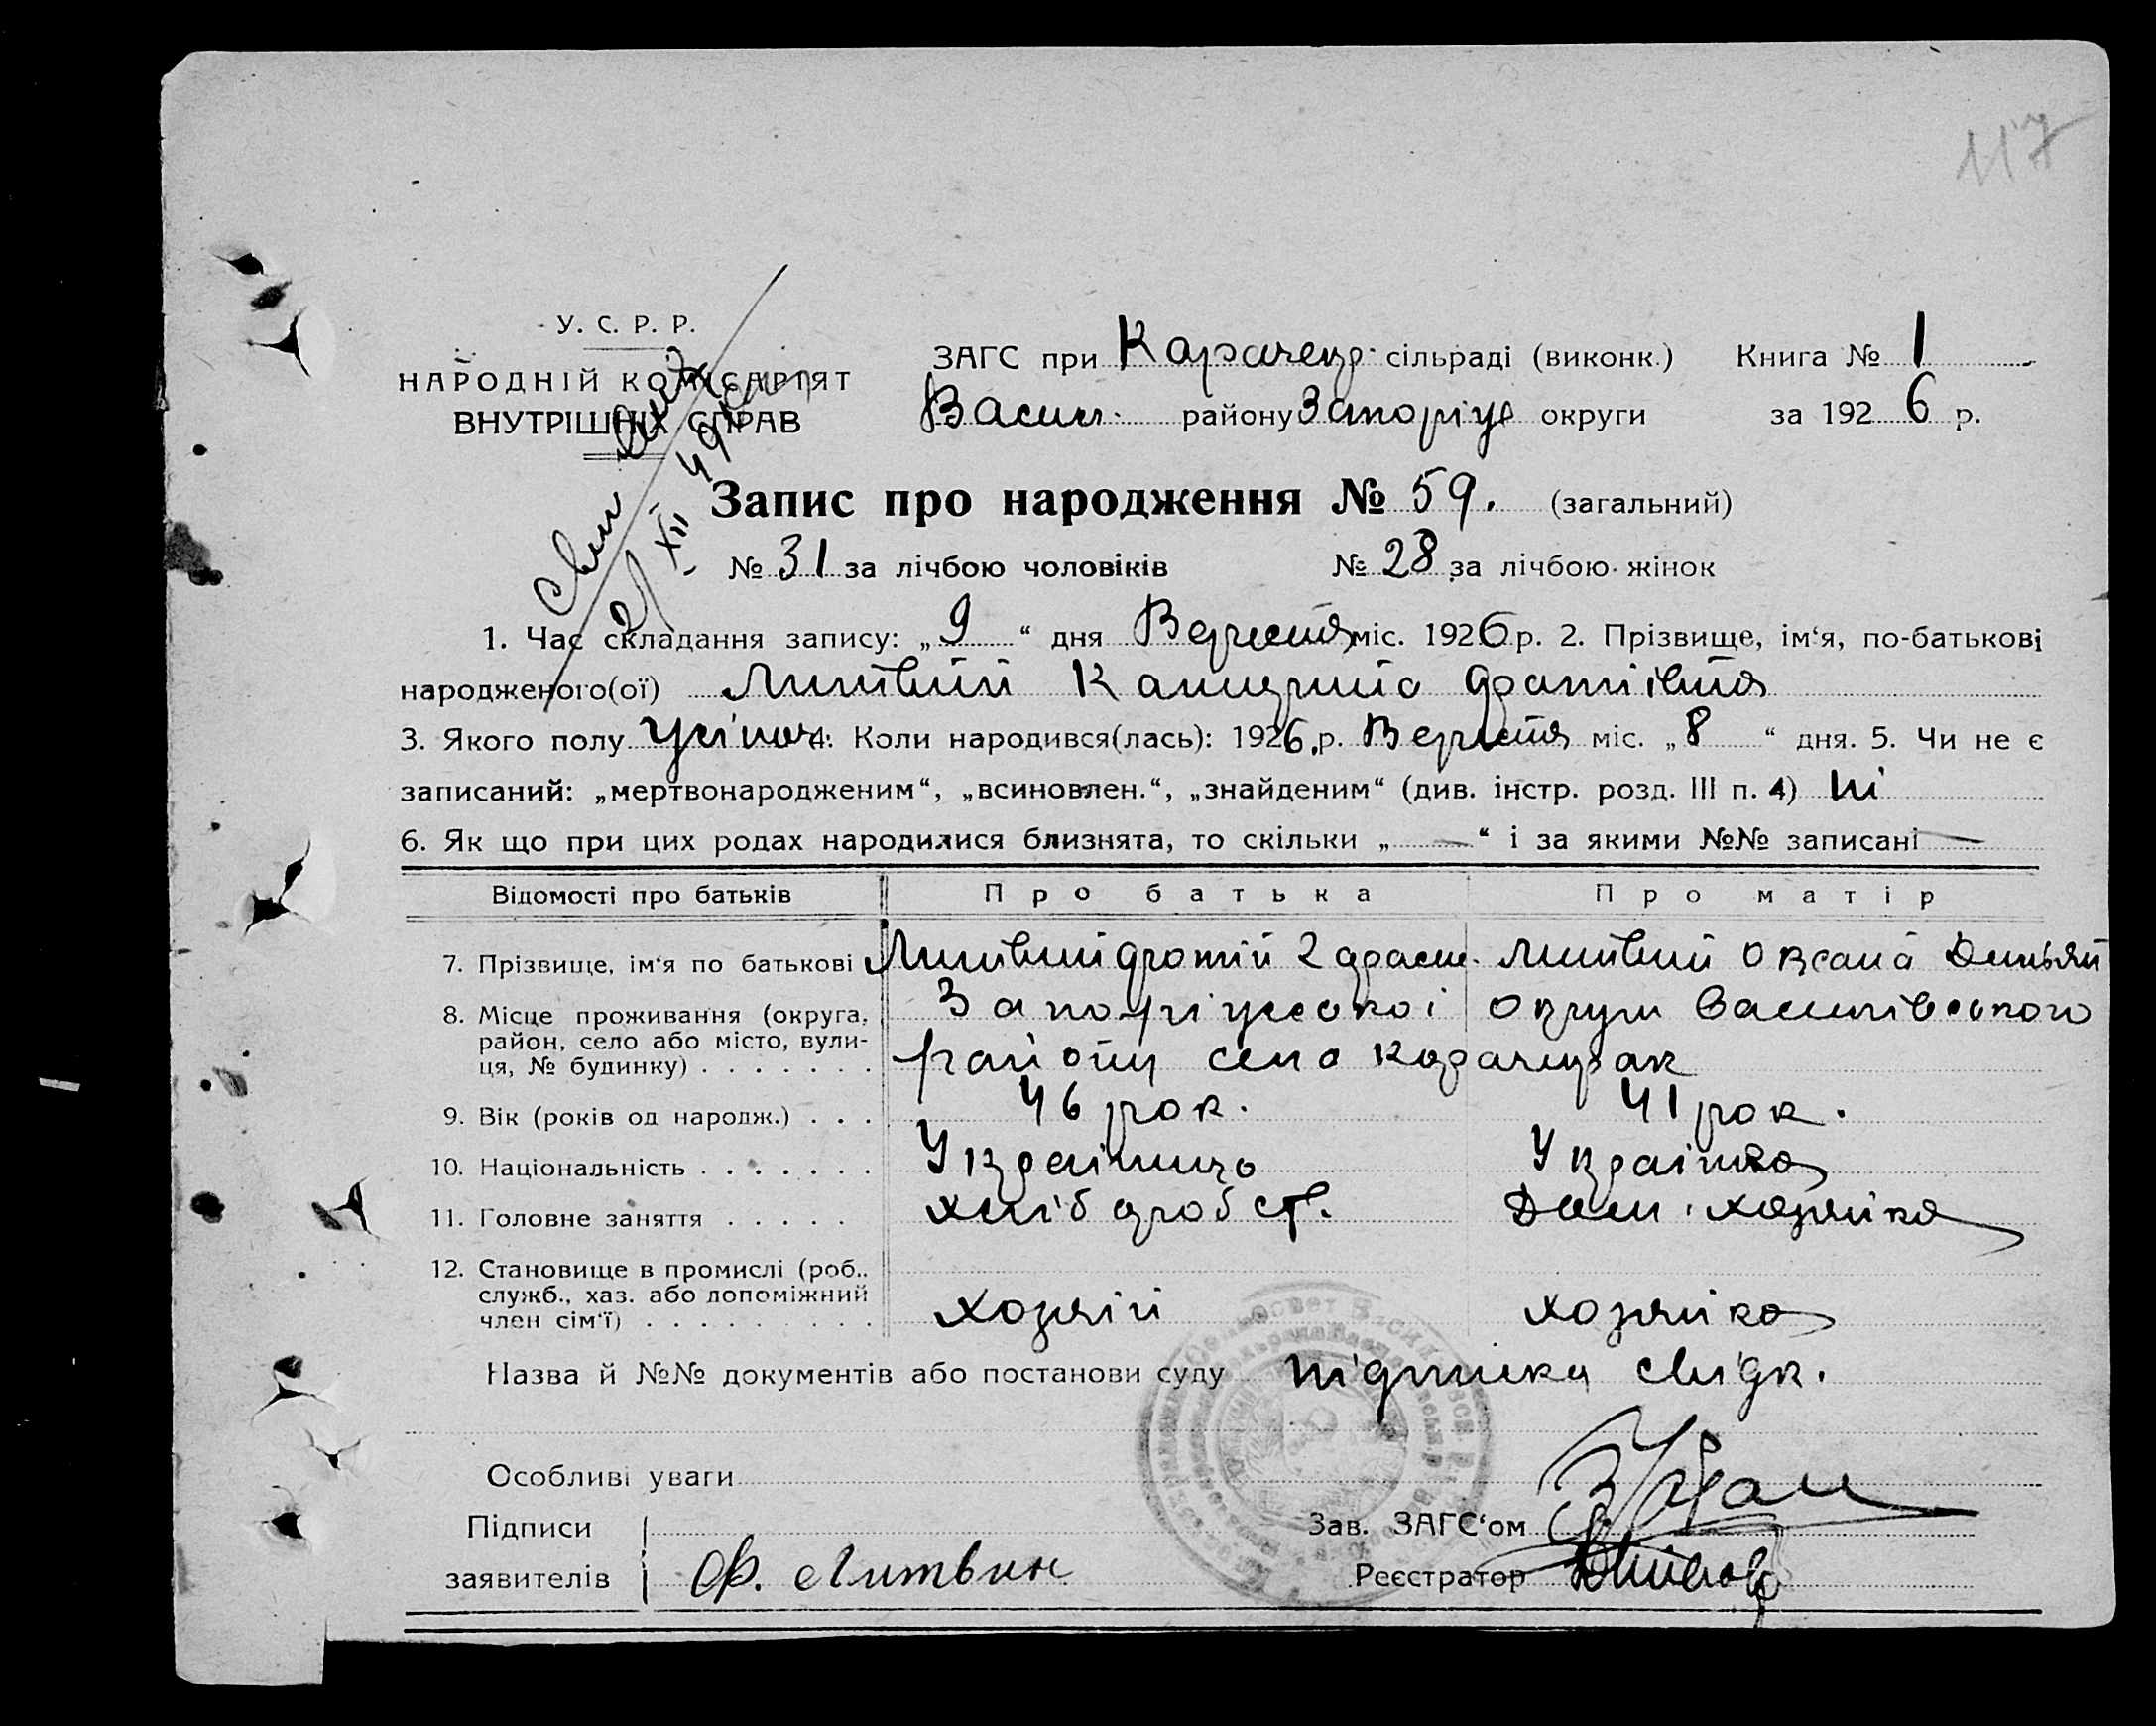 117
У. С. Р. Р.
НАРОДНІЙ КОМІСАРІЯТ
ВНУТРІШНІХ СПРАВ
ЗАГС при Карачекр. сільраді (виконк.) Книга № 1
Васил. району Запоріж округи за 1926 р.
Запис про народження № 59. (загальний)
№ 31 за лічбою чоловіків № 28 за лічбою жінок
1. Час складання запису: „ 9 “ дня Вересня міс. 1926 р. 2. Прізвище, ім‘я, по-батькові
народженого(ої) Литвин Катерина
3. Якого полу жіноч. 4. Коли народився(лась): 1926 р. Вересня міс. „ 8 “ дня. 5. Чи не є
записаний: „мертвонародженим“, „всиновлен.“, „знайденим“ (див. інстр. розд. III п. 4) ні
6. Як що при цих родах народилися близнята, то скільки „ — “ і за якими №№ записані —
Відомості про батьків Про батька Про матір
7. Прізвище, ім‘я по батькові Литвин Литвин Оксана Демьян
8. Місце проживання (округа, Запоріжської округи Василівського
район, село або місто, вули-
ця, № будинку) . . . . . . . району село Карачекрак
9. Вік (років од народж.) . . . 46 рок. 41 рок.
10. Національність . . . . . . . Украінець Украінка
11. Головне заняття . . . . . хліборобст. Дом. хозяйка
12. Становище в промислі (роб..
служб., хаз. або допоміжний
член сім‘ї) . . . . . . . . . хозяін хозяйка
Назва й №№ документів або постанови суду підписка свідк.
Особливі уваги
Підписи
заявителів Ф. Литвин
Зав. ЗАГС‘ом
Реєстратор